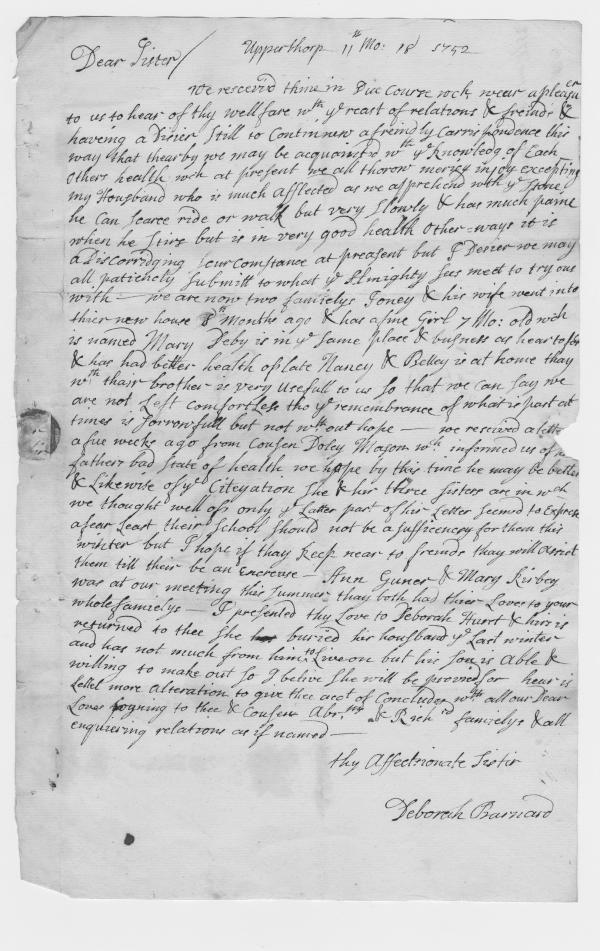 Dear Sister/ Upperthorp 11th Mo: 18 1752
We received thine in Due Course wch wear a pleasuer
to us to hear of thy wellfare wth ye reast of relations & freinds &
having a Disier Still to Continnew a freindly Carrispondence this
way that thearby we may be acquainted wth ye Knowledg of Each
Others health wch at present we all thorow mercy injoy excepting
my Housband who is much afflected as we apprehend with ye Stone
he Can Scarce ride or walk but very Slowly & has much paine
when he Stirs but is in very good health Other=ways it is
a Discorridging Scurcomstance at preasent but I Desier we may
all patiently Submitt to what ye Almighty Sees meet to try ous
with — we are now two famielys Joney & his wife went into
thier new house 8th Months ago & has a fine Girl 7 Mo: old wch
is named Mary Deby is in ye Same place & busness as hearto for
& has had better health of late Nancy & Betley is at home thay
wth thair brother is very Usefull to us So that we can Say we
are not Left Comfortless tho ye remembrance of what is past at
times is Sorrowfull but not wthout hope — we received a letter
a fue weeks ago from Cousen Doley Mason wch informed us of
fathers bad State of health we hope by this time he may be better
& Likewise of ye Citeyation She & her three Sisters are in wch
we thought well off only ye Latter part of hir Letter Seemed to Express
a fear Least their School Should not be a Sufficency for them this
winter but I hope if thay Keep near to freinds thay will assist
them till their be an Encrease — Ann Guner & Mary Kirbey
was at our meeting this Summer thay both had thier Loves to your
whole famielys — I presented thy Love to Deborah Hurst & hirs is
returned to thee She buried his housband ye Last winter
and has not much from him to Live on but his Son is Able &
willing to make out So I belive She will be provied for hear is
Lettel more Alteration to give thee acct of Concludes wth all our Dear
Loves joyning to thee & Cousen & Richd famielys & all
enquiering relations as if named —
thy Affectionate Sistir
Deborah Barnard